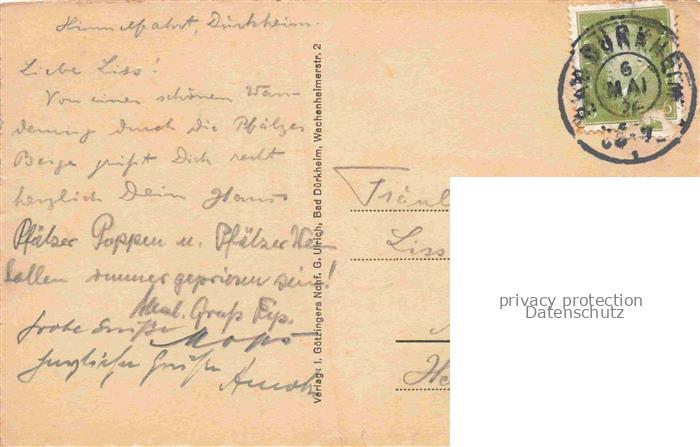 Himmelfahrt, Dürkheim.
Liebe Liss!
Von einer schönen Wan-
derung durch die Pfälzer
Berge grüßt Dich recht
herzlich Dein Hans
Pfälzer Poppen u. Pfälzer
sollen immer gepriesen sein!
Gruß
frohe Grüße Mops
herzliche Grüße
Verlag: I. Götzingers Nchf. G. Ulrich, Bad Dürkheim, Wachenheimerstr. 2
BAD DÜRKHEIM
6
MAI
Fräul
Liss
He
privacy protection
Datenschutz